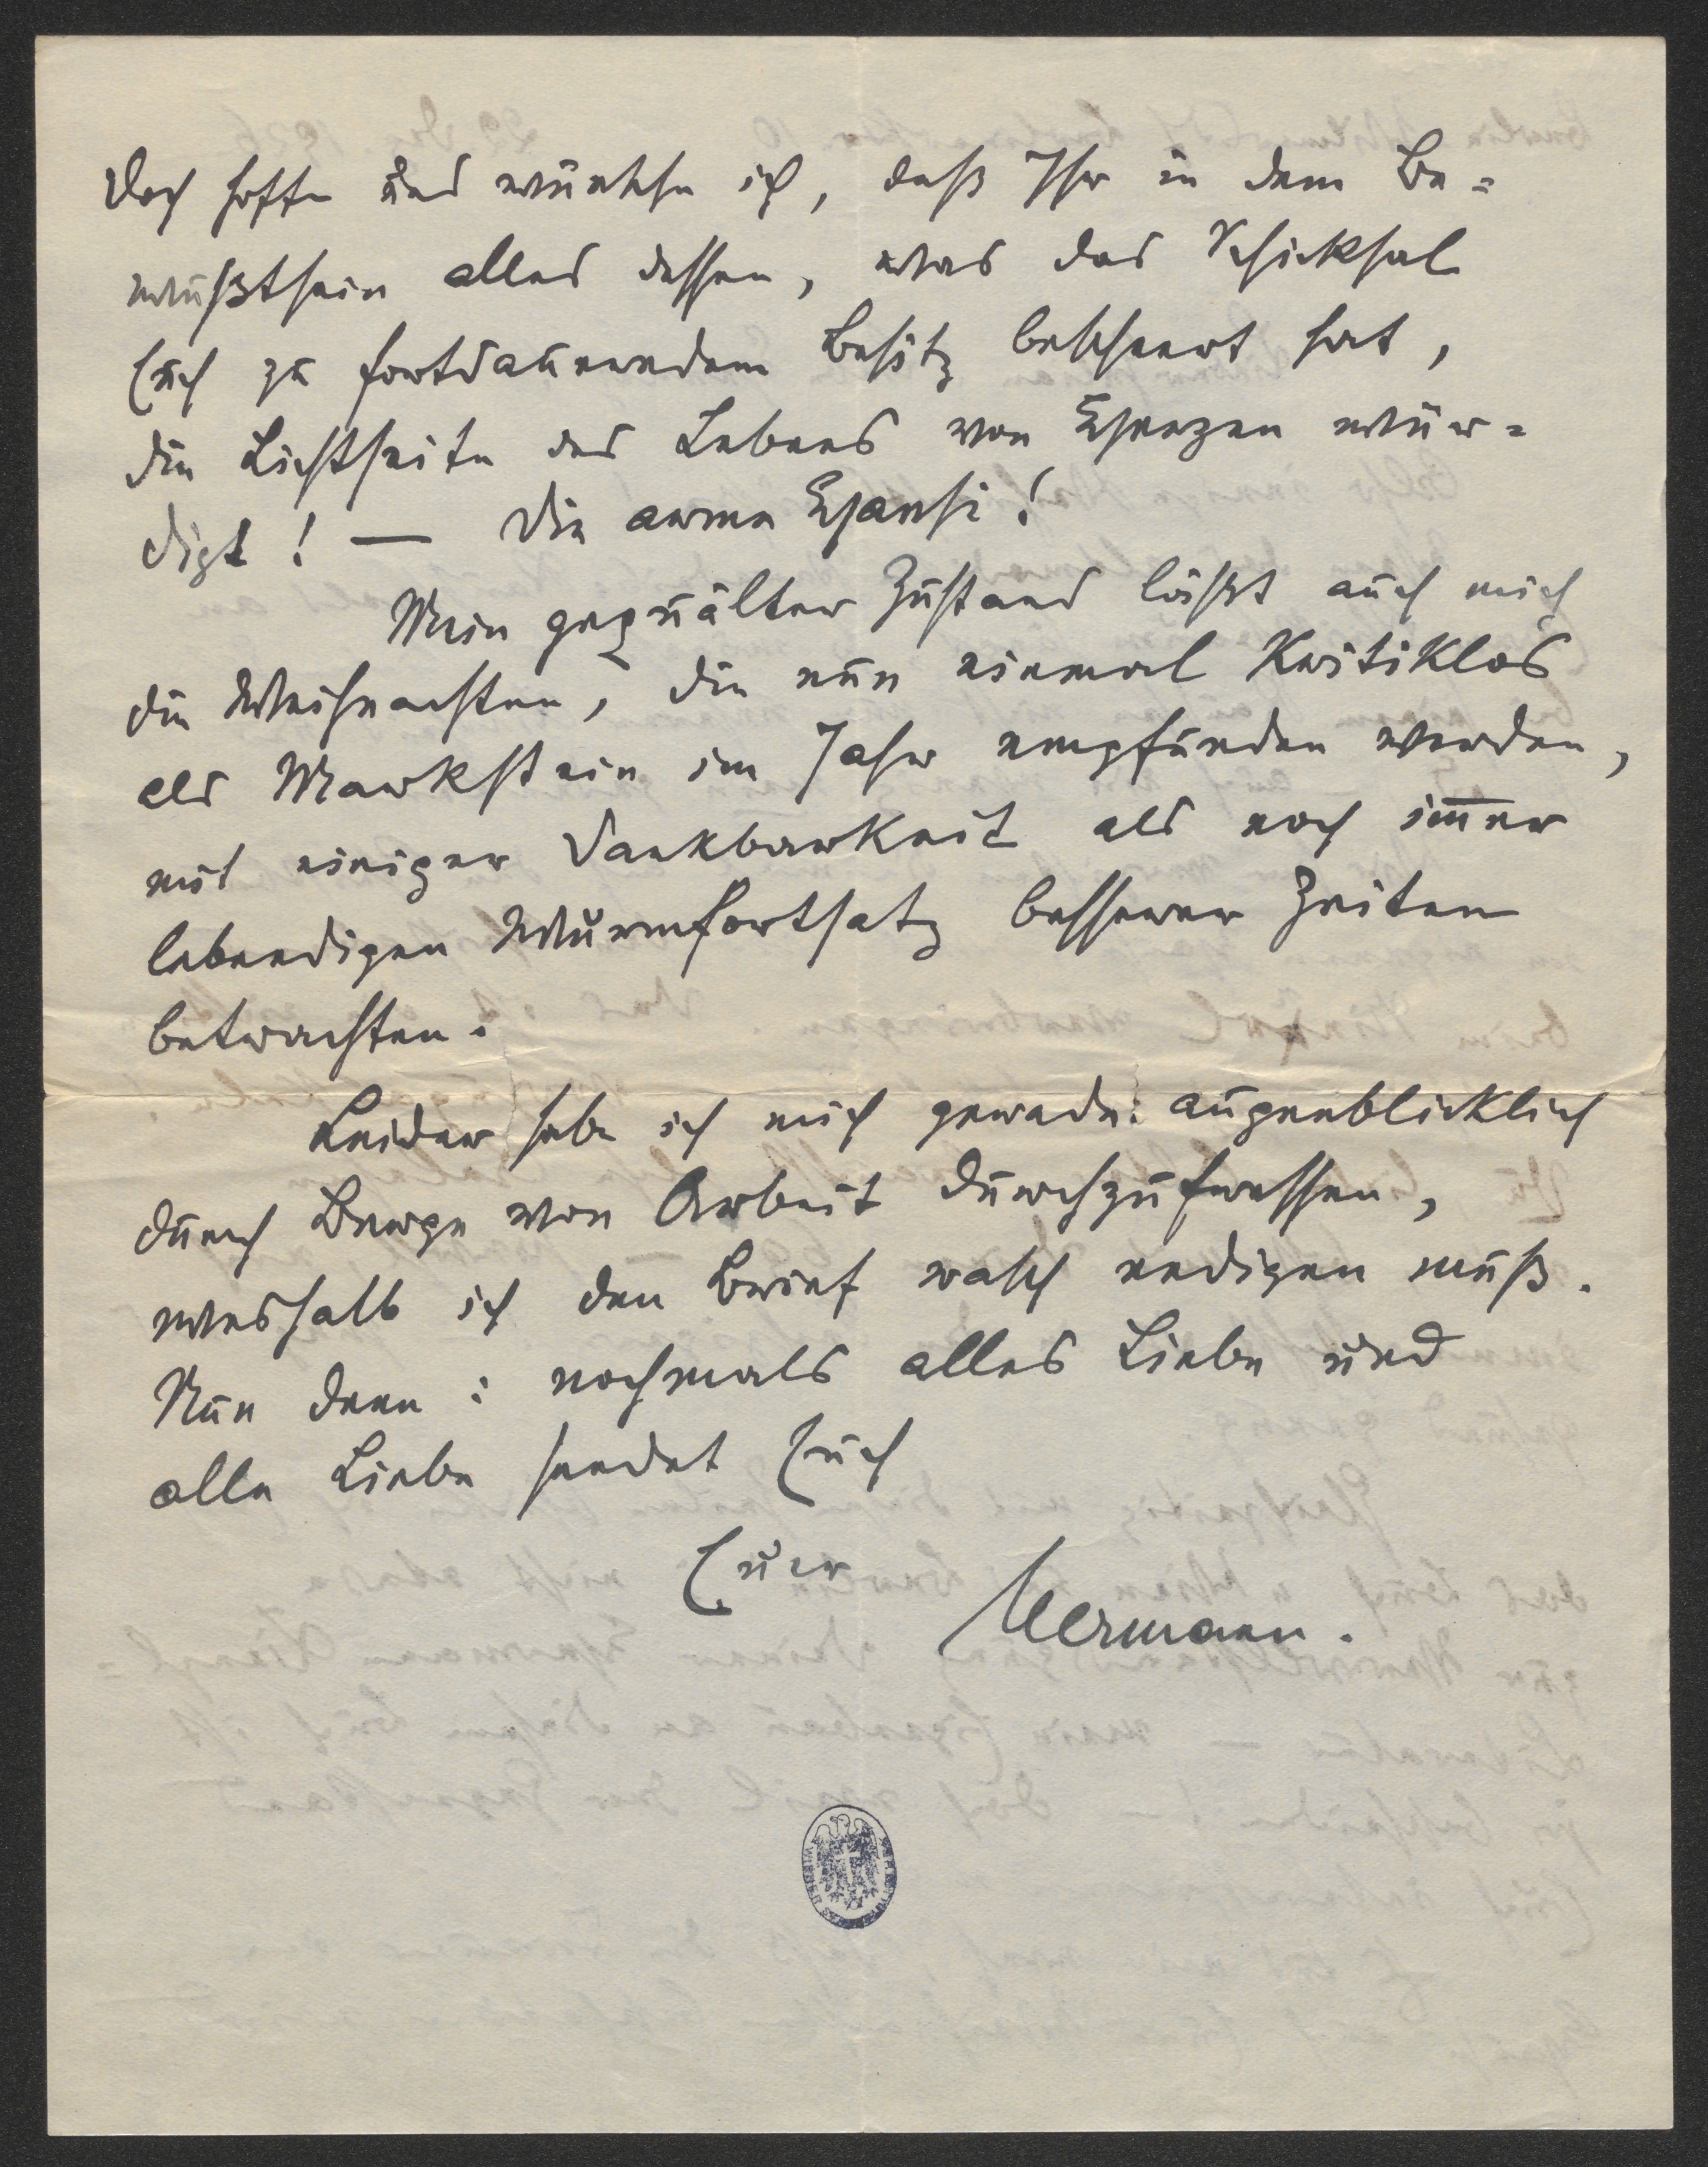 Doch hoffe und wünsche ich, daß Ihr in dem Be=
wußtsein alles dessen, was das Schicksal
Euch zu fortdauerndem Besitz beschert hat,
die Lichtseite des Lebens von Herzen wür=
digt! — Die arme Hansi!
Mein gequälter Zustand läßt auch mich
die Weihnachten, die nun einmal kritiklos
als Markstein im Jahr empfunden werden,
mit einiger Dankbarkeit als noch im̅er
lebendigen Wurmfortsatz besserer Zeiten
betrachten.
Leider habe ich mich gerade augenblicklich
durch Berge von Arbeit durchzufressen,
weshalb ich den Brief rasch endigen muß.
Nun denn: nochmals alles Liebe und
alle Liebe sendet Euch
Euer
Hermann.